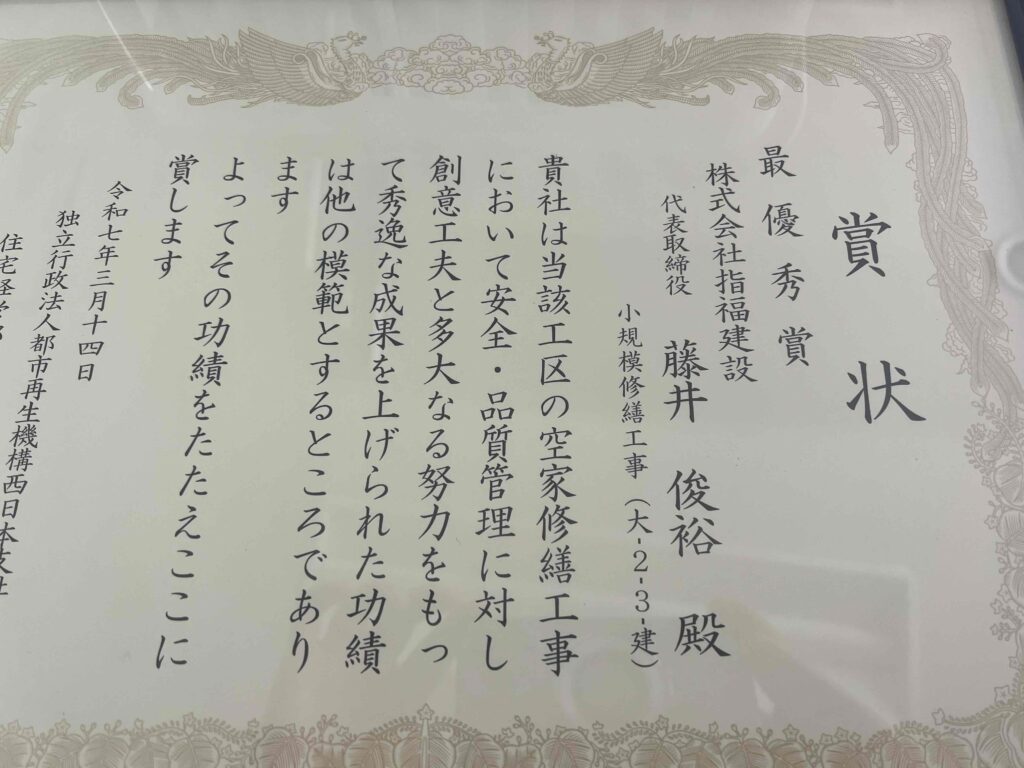 賞状
最優秀賞
株式会社指福建設
代表取締役 藤井 俊裕 殿
小規模修繕工事(大-2-3-建)
貴社は当該工区の空家修繕工事
において安全・品質管理に対し
創意工夫と多大なる努力をもっ
て秀逸な成果を上げられた功績
は他の模範とするところであり
ます
よってその功績をたたえここに
賞します
令和七年三月十四日
独立行政法人都市再生機構西日本支社
住宅経営部